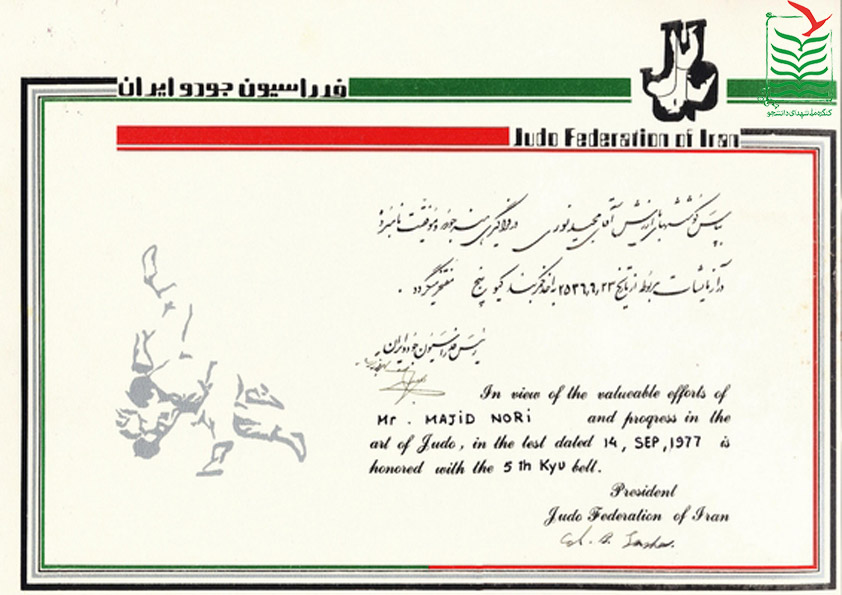 فدراسیون جودو ایران
کنگره ملی شهدای دانشجو
Judo Federation of Iran
بپاس کوششهای باارزش آقای مجید نوری در فراگیری هنر جودو و موفقیت نامبرده
در آزمایشات مربوط از تاریخ ۲۵۳۶,۶,۲۳ به اخذ کمربند کیو پنج مفتخر میگردد .
رئیس فدراسیون جودو ایران
In view of the valueable efforts of
Mr . MAJID NORI and progress in the
art of Judo , in the test dated 14 , SEP , 1977 is
honored with the 5 th Kyu belt .
President
Judo Federation of Iran